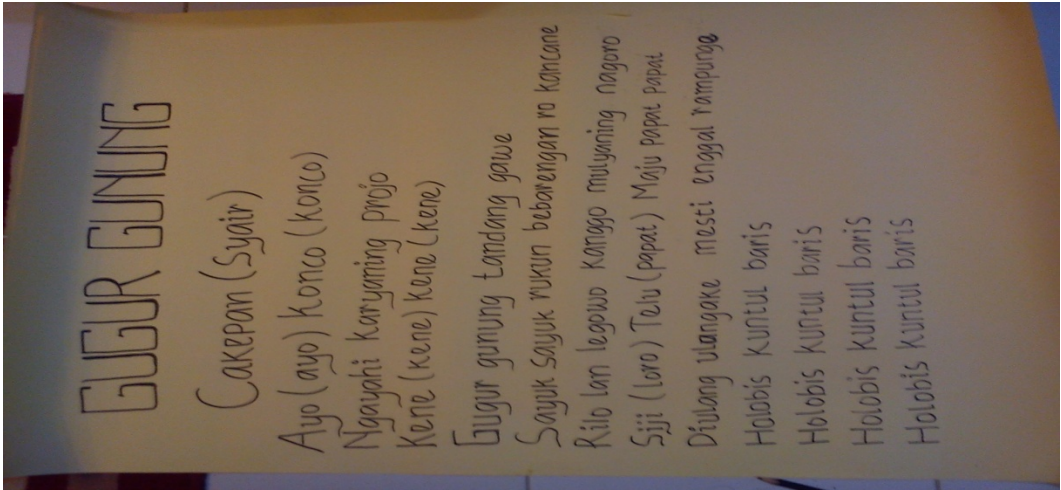 GUGUR GUNUNG
Cakepan (Syair)
Ayo (ayo) Konco (Konco)
Ngayahi Karyaming projo
Kene (Kene) Kene (Kene)
Gugur gunung tandang gawe
Sayuk sayuk rukun bebarengan ro kancane
Rilo lan legowo kanggo mulyaning nagoro
Siji (loro) Telu (papat) Maju papat papat
Diulang ulangake mesti enggal rampunge
Holobis kuntul baris
Holobis kuntul baris
Holobis kuntul baris
Holobis kuntul baris